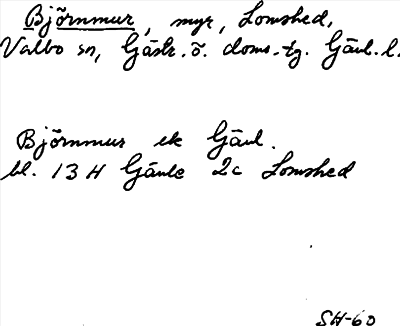 Björnmur, myr, Lomshed,
Valbo sn, Gästr. ö. doms.tg. Gävl. l.
Björnmur ek Gävl.
bl. 13 H Gävle 2c Lomshed
SH-60